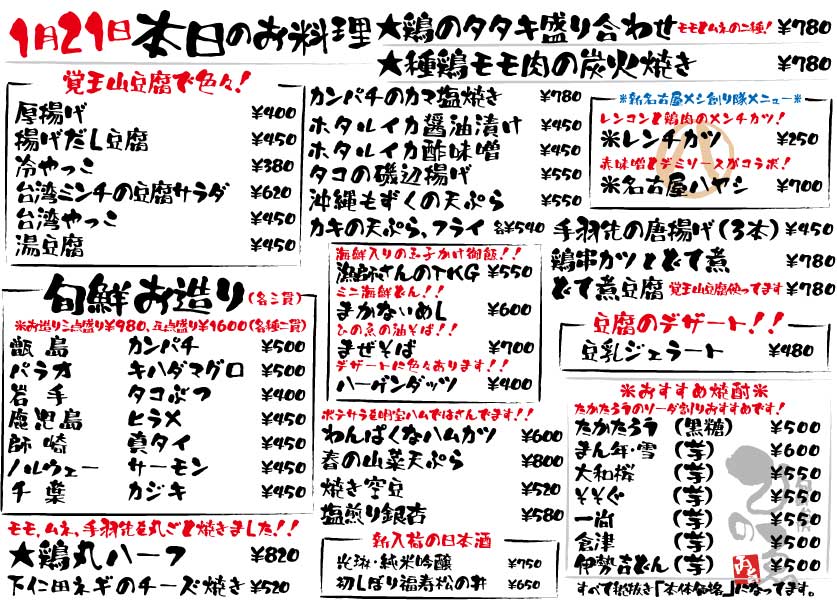 1月21日 本日のお料理
★鶏のタタキ盛り合わせ モモとムネの二種! ¥780
★種鶏モモ肉の炭火焼き ¥780
覚王山豆腐で色々!
厚揚げ ¥400
揚げだし豆腐 ¥450
冷やっこ ¥380
台湾ミンチの豆腐サラダ ¥620
台湾やっこ ¥450
湯豆腐 ¥450
旬鮮お造り(各三貫)
※お造り三点盛り¥980、五点盛り¥1600(各種二貫)
甑島 カンパチ ¥500
パラオ キハダマグロ ¥500
岩手 タコぶつ ¥400
鹿児島 ヒラメ ¥450
師崎 真タイ ¥450
ノルウェー サーモン ¥450
千葉 カジキ ¥450
モモ、ムネ、手羽先を丸ごと焼きました!!
★鶏丸ハーフ ¥820
下仁田ネギのチーズ焼き ¥520
カンパチのカマ塩焼き ¥780
ホタルイカ醤油漬け ¥450
ホタルイカ酢味噌 ¥450
タコの磯辺揚げ ¥550
沖縄もずくの天ぷら ¥550
カキの天ぷら、フライ 各¥540
海鮮入りの玉子かけ御飯!!
漁師さんのTKG ¥550
ミニ海鮮どん!!
まかないめし ¥600
ひの魚の油そば!!
まぜそば ¥700
デザートに色々あります!!
ハーゲンダッツ ¥400
ポテサラを明宝ハムではさんでます!!
わんぱくなハムカツ ¥600
春の山菜天ぷら ¥800
焼き空豆 ¥520
塩煎り銀杏 ¥580
新入荷の日本酒
純米吟醸 ¥750
初しぼり福寿松の井 ¥650
※新名古屋メシ創り隊メニュー※
レンコンと鶏肉のメンチカツ!
※レンチカツ ¥250
赤味噌とデミソースがコラボ!
※名古屋ハヤシ ¥700
手羽先の唐揚げ(3本) ¥450
鶏串カツとどて煮 ¥780
どて煮豆腐 覚王山豆腐使ってます ¥780
豆腐のデザート!!
豆乳ジェラート ¥480
※おすすめ焼酎※
たかたろうのソーダ割りおすすめです!
たかたろう (黒糖) ¥500
まん年・雪 (芋) ¥600
大和桜 (芋) ¥550
そそぐ (芋) ¥550
一尚 (芋) ¥550
倉津 (芋) ¥500
伊勢吉どん (芋) ¥550
すべて税抜き「本体価格」になってます。